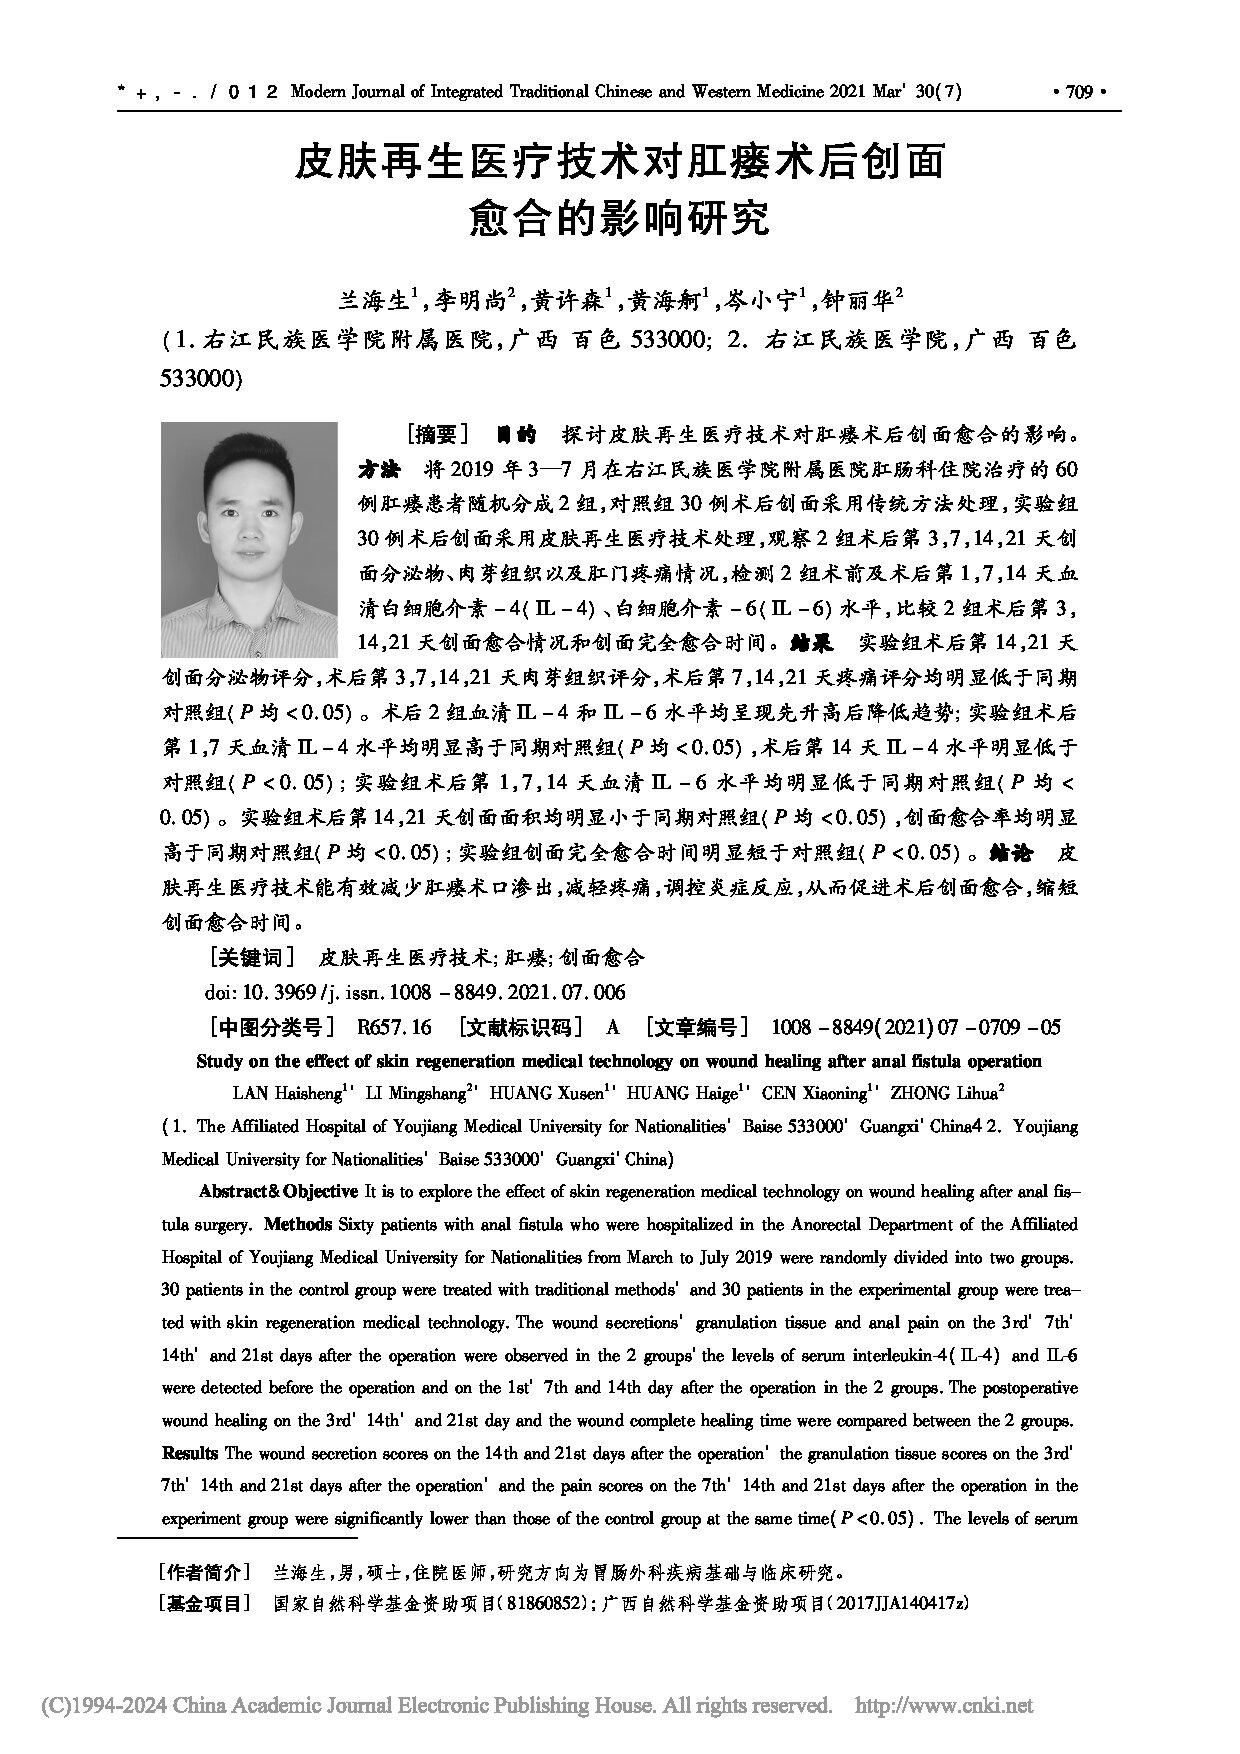 * + , - . / 0 1 2 Modern Journal of Integrated Traditional Chinese and Western Medicine 2021 Mar' 30(7) ·709·
皮肤再生医疗技术对肛瘘术后创面
愈合的影响研究
兰海生1,李明尚2,黄许森1,黄海舸1,岑小宁1,钟丽华2
(1.右江民族医学院附属医院,广西 百色 533000; 2. 右江民族医学院,广西 百色
533000)
[摘要] 目的 探讨皮肤再生医疗技术对肛瘘术后创面愈合的影响。
方法 将2019 年3—7月在右江民族医学院附属医院肛肠科住院治疗的60
例肛瘘患者随机分成2组,对照组30例术后创面采用传统方法处理,实验组
30例术后创面采用皮肤再生医疗技术处理,观察2组术后第3,7,14,21天创
面分泌物、肉芽组织以及肛门疼痛情况,检测2组术前及术后第1,7,14天血
清白细胞介素-4(IL-4)、白细胞介素-6(IL-6)水平,比较2组术后第3,
14,21天创面愈合情况和创面完全愈合时间。结果 实验组术后第14,21天
创面分泌物评分,术后第3,7,14,21天肉芽组织评分,术后第7,14,21天疼痛评分均明显低于同期
对照组(P均<0.05)。术后2组血清IL-4和IL-6水平均呈现先升高后降低趋势;实验组术后
第1,7天血清IL-4水平均明显高于同期对照组(P均<0.05),术后第14天IL-4水平明显低于
对照组(P<0.05);实验组术后第1,7,14天血清IL-6水平均明显低于同期对照组(P均<
0.05)。实验组术后第14,21天创面面积均明显小于同期对照组(P均<0.05),创面愈合率均明显
高于同期对照组(P均<0.05);实验组创面完全愈合时间明显短于对照组(P<0.05)。结论 皮
肤再生医疗技术能有效减少肛瘘术口渗出,减轻疼痛,调控炎症反应,从而促进术后创面愈合,缩短
创面愈合时间。
[关键词] 皮肤再生医疗技术;肛瘘;创面愈合
doi:10.3969/j.issn.1008-8849.2021.07.006
[中图分类号] R657.16 [文献标识码] A [文章编号] 1008-8849(2021)07-0709-05
Study on the effect of skin regeneration medical technology on wound healing after anal fistula operation
LAN Haisheng1' LI Mingshang2' HUANG Xusen1' HUANG Haige1' CEN Xiaoning1' ZHONG Lihua2
(1. The Affiliated Hospital of Youjiang Medical University for Nationalities' Baise 533000' Guangxi' China4 2. Youjiang
Medical University for Nationalities' Baise 533000' Guangxi' China)
Abstract&Objective It is to explore the effect of skin regeneration medical technology on wound healing after anal fis-
tula surgery. Methods Sixty patients with anal fistula who were hospitalized in the Anorectal Department of the Affiliated
Hospital of Youjiang Medical University for Nationalities from March to July 2019 were randomly divided into two groups.
30 patients in the control group were treated with traditional methods' and 30 patients in the experimental group were trea-
ted with skin regeneration medical technology. The wound secretions' granulation tissue and anal pain on the 3rd' 7th'
14th' and 21st days after the operation were observed in the 2 groups' the levels of serum interleukin-4(IL-4) and IL-6
were detected before the operation and on the 1st' 7th and 14th day after the operation in the 2 groups. The postoperative
wound healing on the 3rd' 14th' and 21st day and the wound complete healing time were compared between the 2 groups.
Results The wound secretion scores on the 14th and 21st days after the operation' the granulation tissue scores on the 3rd'
7th' 14th and 21st days after the operation' and the pain scores on the 7th' 14th and 21st days after the operation in the
experiment group were significantly lower than those of the control group at the same time(P<0.05). The levels of serum
[作者简介] 兰海生,男,硕士,住院医师,研究方向为胃肠外科疾病基础与临床研究。
[基金项目] 国家自然科学基金资助项目(81860852);广西自然科学基金资助项目(2017JJA140417z)
(C)1994-2024 China Academic Journal Electronic Publishing House. All rights reserved. http://www.cnki.net